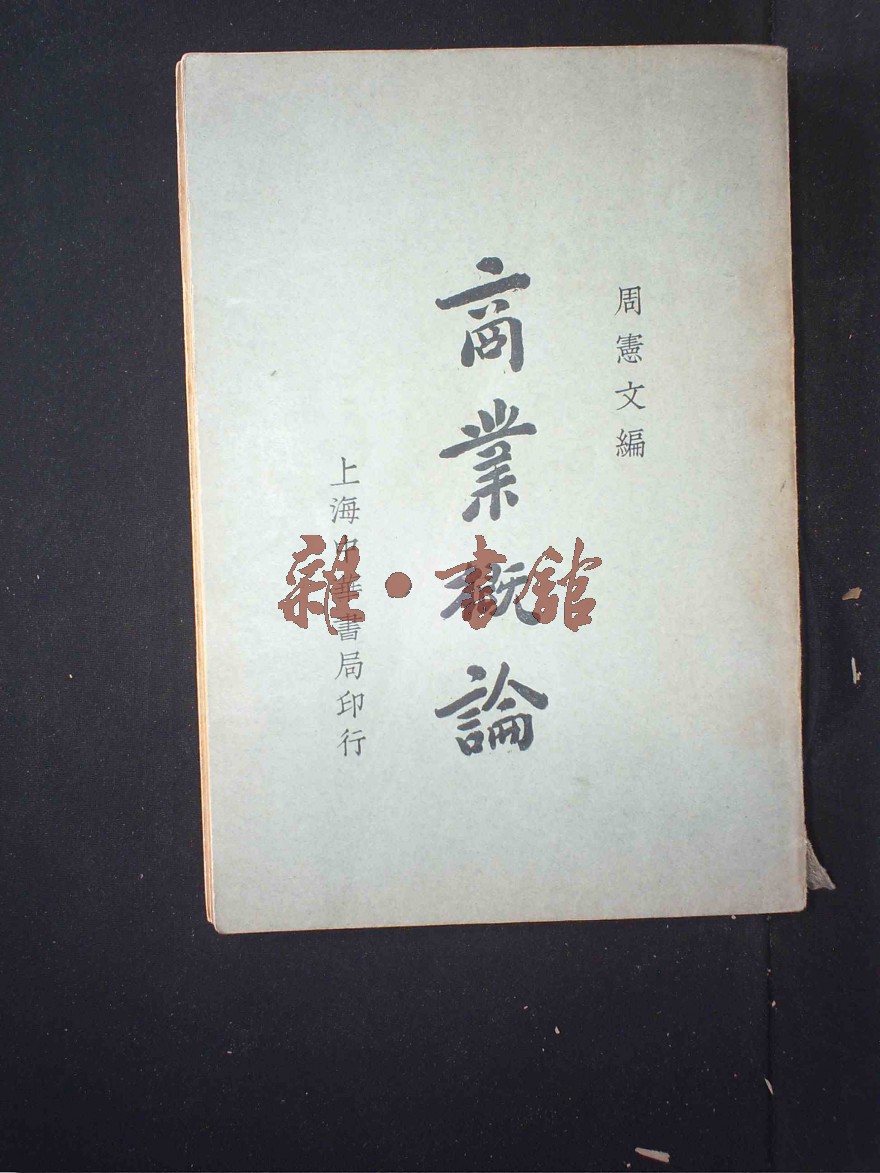 周憲文編
商業概論
上海中華書局印行
雜·書舘